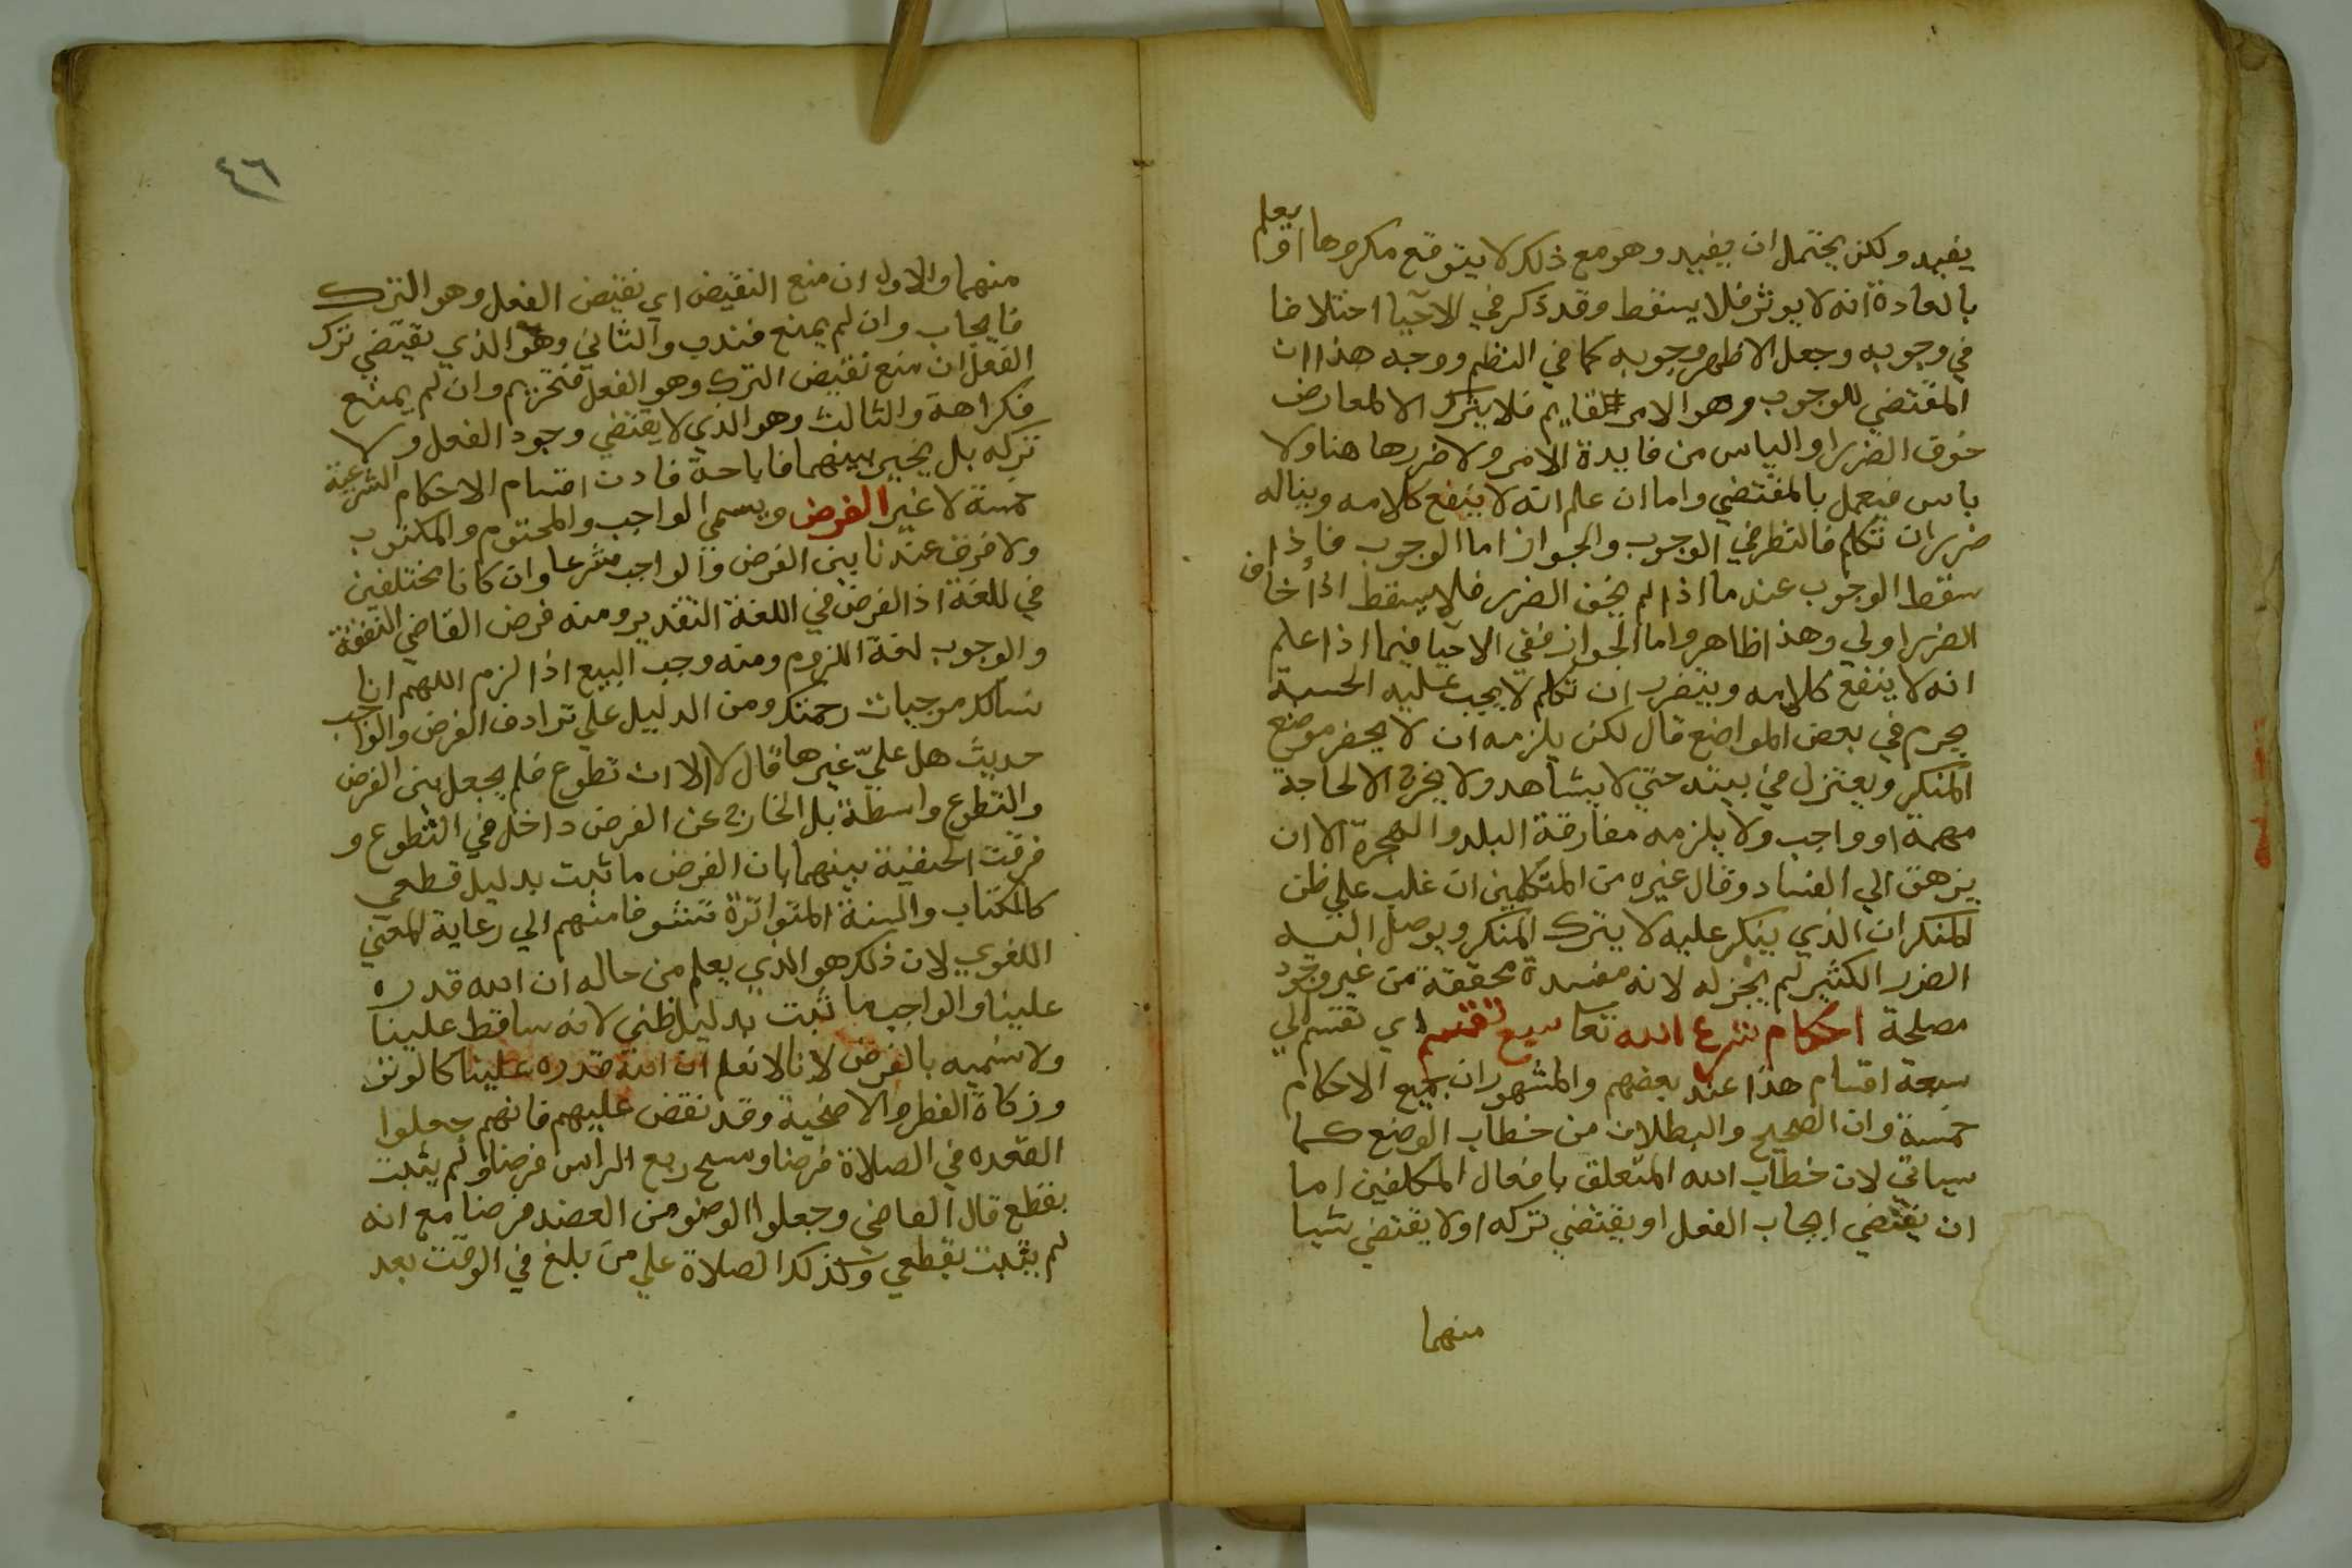 يفيد ولكن يحتمل ان يفيد وهو مع ذلك لا يتوقع مكروها او يعلم
بالعادة انه لا يوثر فلا يسقط وقد ذكر في الاحيا اختلافا
في وجوبه وجعل الاظهر وجوبه كما في النظم ووجه هذا ان
المقتضي للوجوب وهو الامر قايم فلا يترك الا لمعارض
خوف الضرر او الياس من فايدة الامر ولا ضرر ها هنا ولا
ياس فيعمل بالمقتضي واما ان علم انه لا ينفع كلامه ويناله
ضرر ان تكلم فالنظر في الوجوب والجواز اما الوجوب فاذا
سقط الوجوب عند ما اذا لم يخف الضرر فلا يسقط اذا خاف
الضرر اولي وهذا ظاهر واما الجواز ففي الاحيا فيما اذا علم
انه لا ينفع كلامه ويتضرر ان تكلم لا يجب عليه الحسبة
يحرم في بعض المواضع قال لكن يلزمه ان لا يحضر موضع
المنكر ويعتزل في بيته حتي لا يشاهد ولا يخرج الا لحاجة
مهمة او واجب ولا يلزمه مفارقة البلد والهجرة الا ان
يرهق الي الفساد وقال غيره من المتكلمين ان غلب علي ظن
المنكر ان الذي ينكر عليه لا يترك المنكر ويوصل اليه
الضرر الكثير لم يجز له لانه مفسدة محققة من غير وجود
مصلحة احكام شرع الله تعا سبع تقسم اي تقسم الي
سبعة اقسام هذا عند بعضهم والمشهور ان جميع الاحكام
خمسة وان الصحيح والبطلان من خطاب الوضع كما
سياتي لان خطاب الله المتعلق بافعال المكلفين اما
ان يقتضي ايجاب الفعل او يقتضي تركه او لا يقتضي شيا
منهما
٤٦
منهما والاول ان منع النقيض اي نقيض الفعل وهو الترك
فايجاب وان لم يمنع فندب والثاني وهو الذي يقتضي ترك
الفعل ان منع نقيض الترك وهو الفعل فتحريم وان لم يمنع
فكراهة والثالث وهو الذي لا يقتضي وجود الفعل ولا
تركه بل يخير بينهما فاباحة فادن اقسام الاحكام الشرعية
خمسة لا غير الفرض ويسمي الواجب والمحتوم والمكتوب
ولا فرق عندنا بين الفرض والواجب شرعا وان كانا مختلفين
في اللغة اذ الفرض في اللغة التقدير ومنه فرض القاضي النفقة
والوجوب لغة اللزوم ومنه وجب البيع اذا لزم اللهم انا
نسالك موجبات رحمتك ومن الدليل علي ترادف الفرض والواجب
حديث هل عليّ غيرها قال لا الا ان تطوع فلم يجعل بين الفرض
والتطوع واسطة بل الخارج عن الفرض داخل في التطوع و
فرقت الحنفية بينهما بان الفرض ما ثبت بدليل قطعي
كالكتاب والسنة المتواترة تشوفا منهم الي رعاية المعني
اللغوي لان ذلك هو الذي يعلم من حاله ان الله قدره
علينا والواجب ما ثبت بدليل ظني لانه ساقط علينا
ولا نسميه بالفرض لانا لا نعلم ان الله قدره علينا كالوتر
وزكاة الفطر والاضحية وقد نقض عليهم فانهم جعلوا
القعده في الصلاة فرضا ومسح ربع الراس فرضا ولم يثبت
بقطع قال القاضي وجعلوا الوضو من الفصد فرضا مع انه
لم يثبت بقطعي وكذلك الصلاة علي من بلغ في الوقت بعد